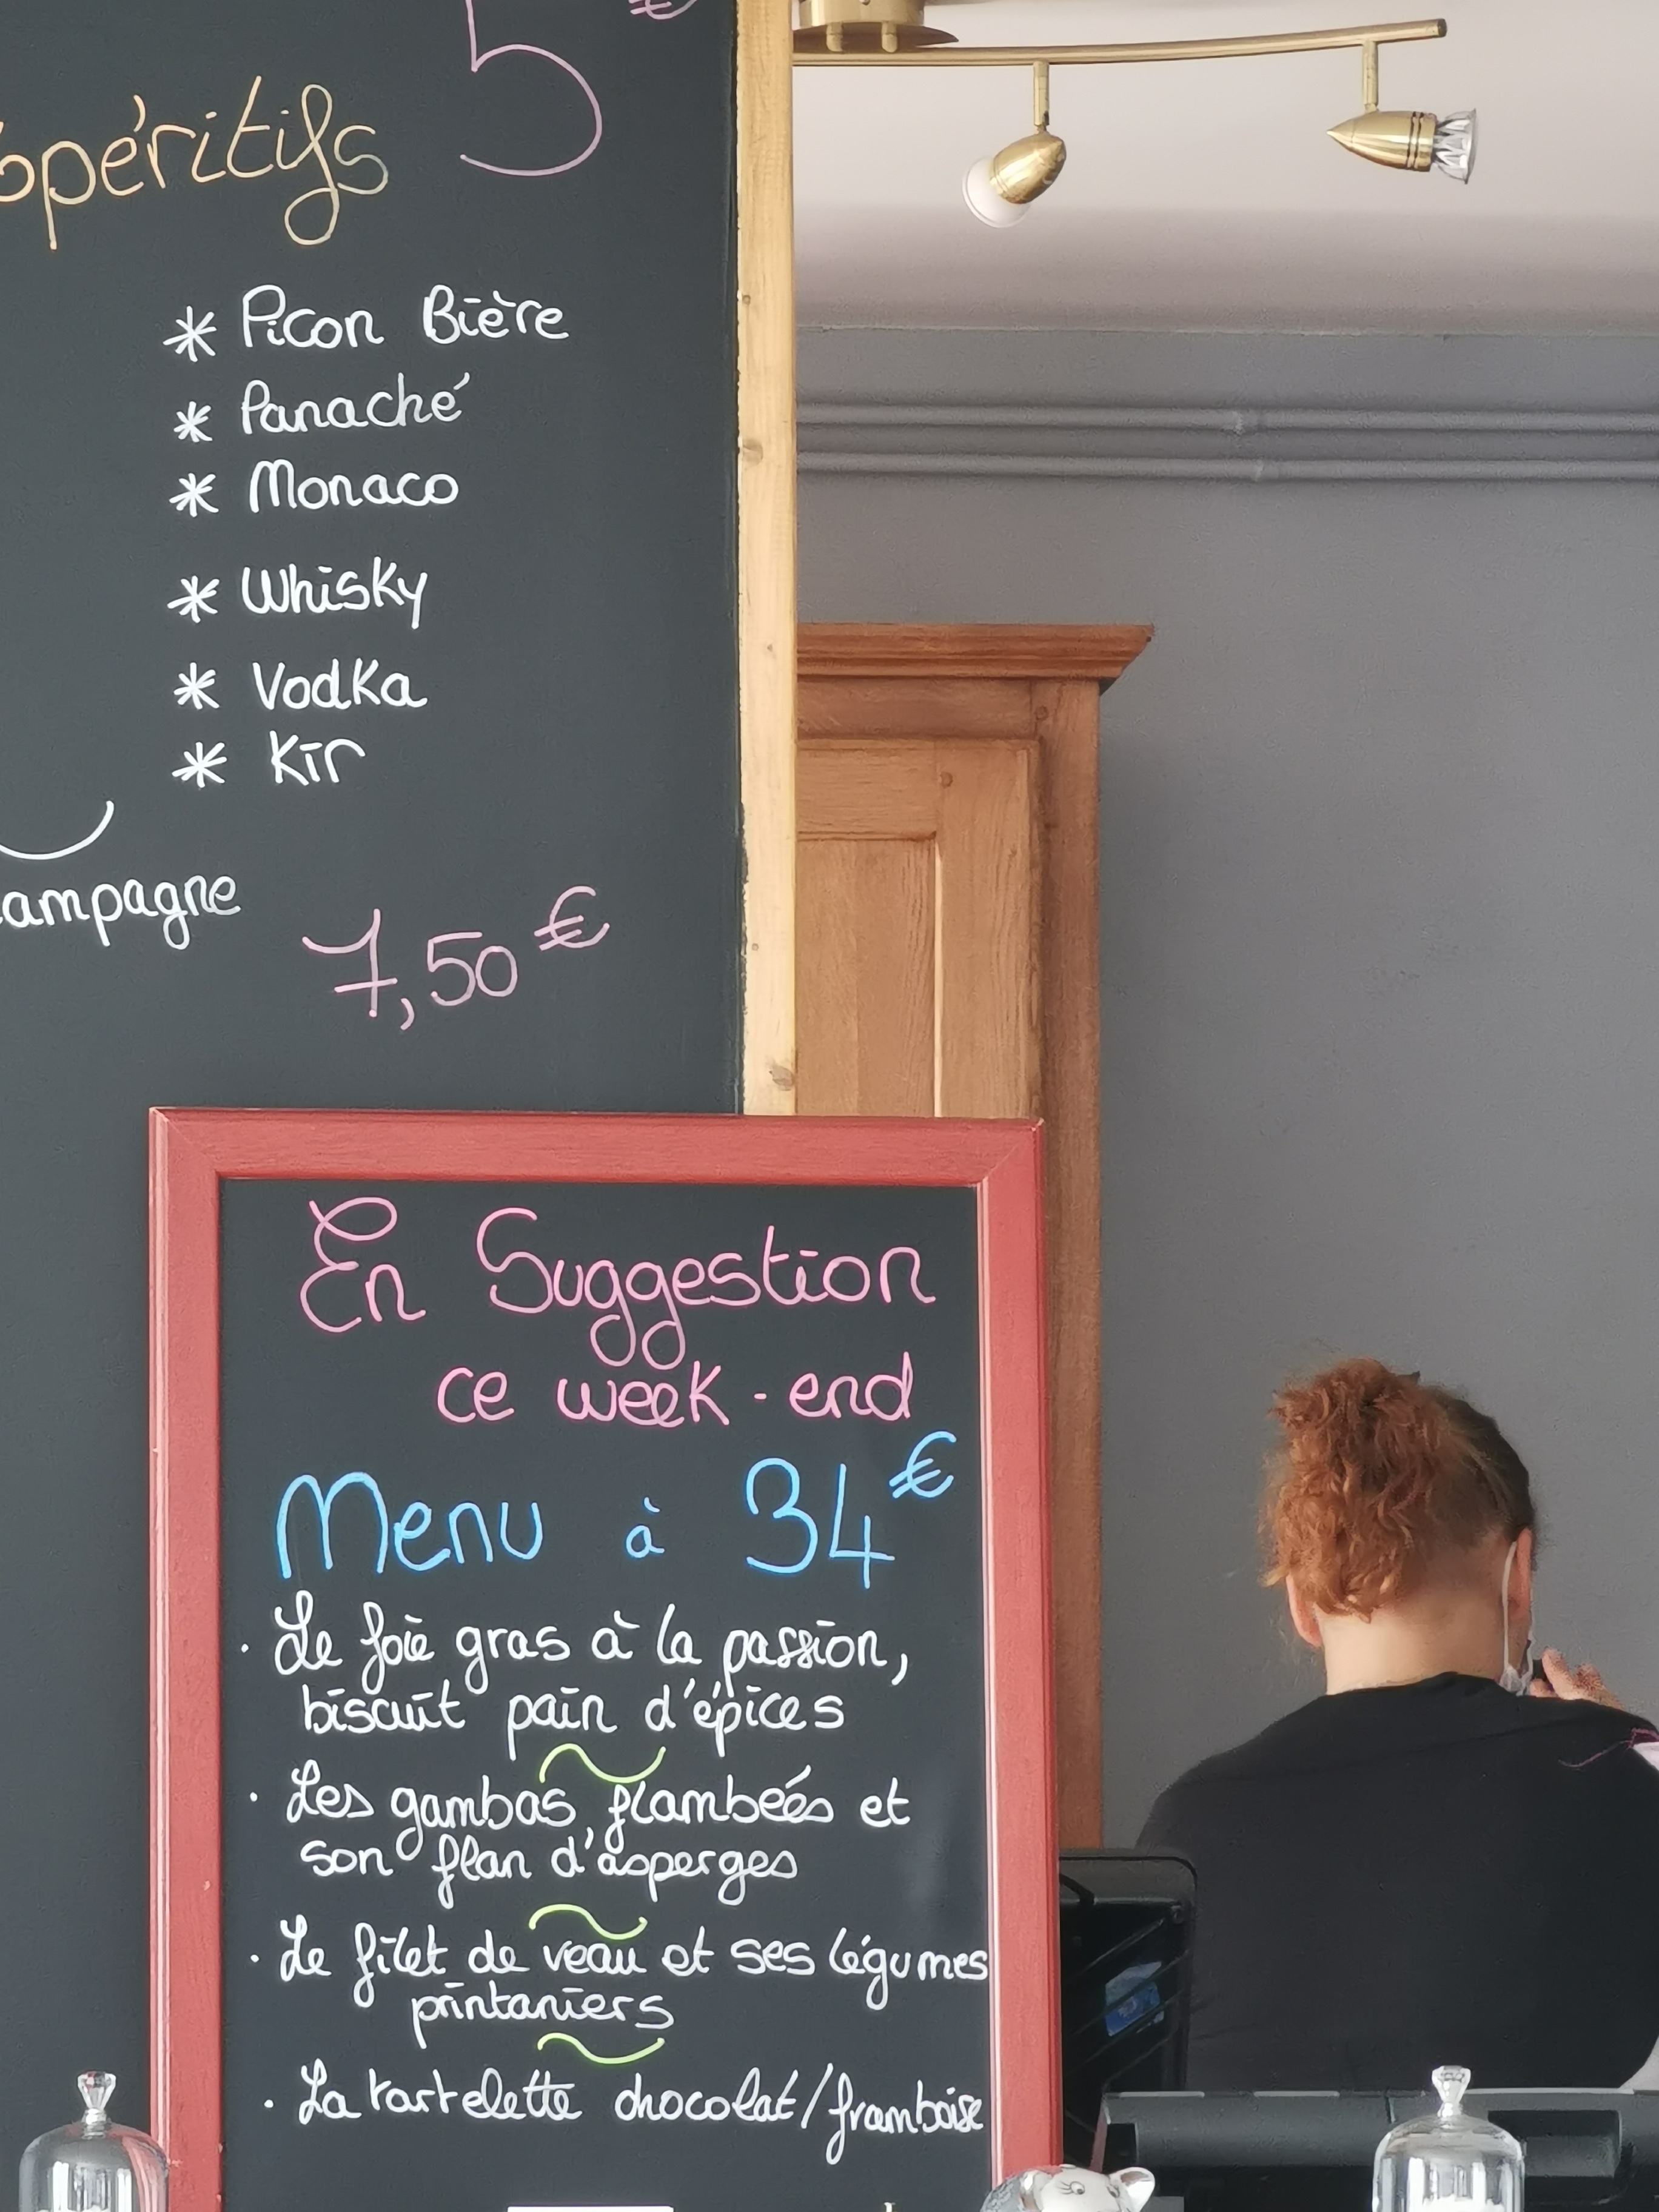 5 €
apéritifs
* Picon Bière
* Panaché
* Monaco
* Whisky
* Vodka
* Kir
ampagne
7,50 €
En Suggestion
ce week-end
Menu à 34 €
· Le foie gras à la passion,
biscuit pain d'épices
· Les gambas flambées et
son flan d'asperges
· Le filet de veau et ses légumes
printaniers
· La tartelette chocolat/framboise